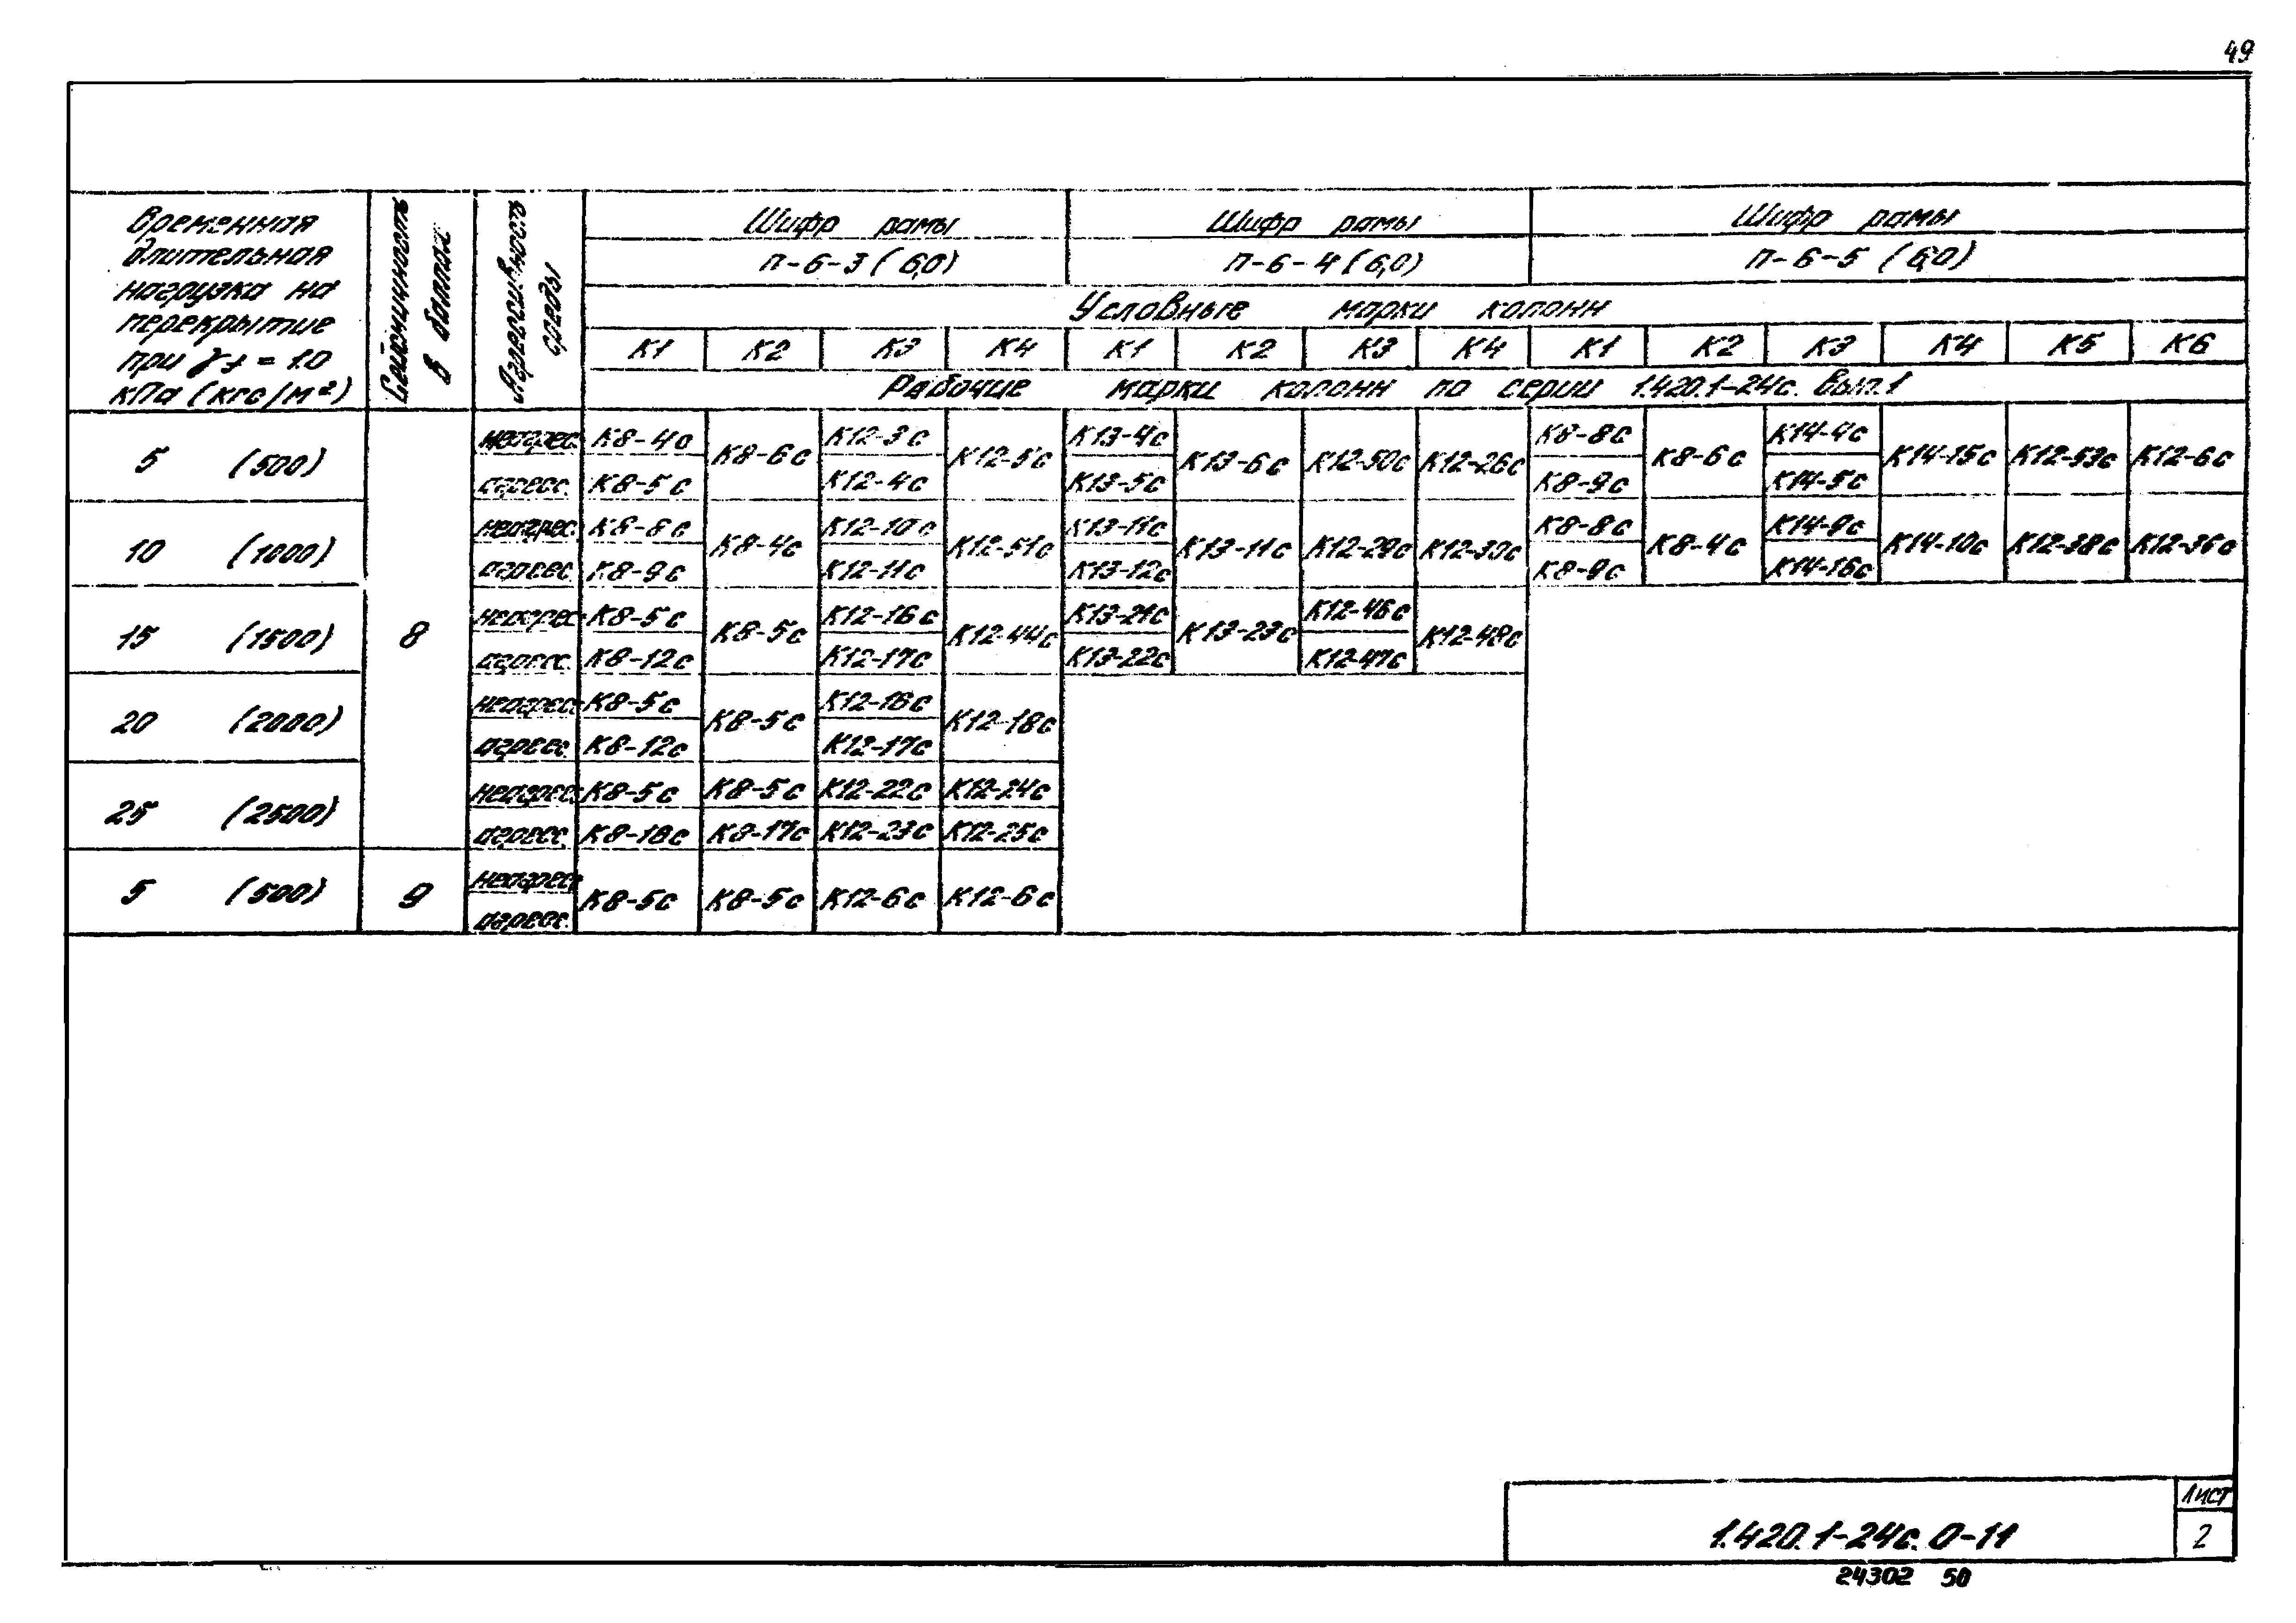 49
Временная длительная нагрузка на перекрытие при γf = 1.0 кПа (кгс/м²)
Сейсмичность в баллах
Агрессивность среды
Шифр рамы Шифр рамы Шифр рамы
П-6-3 (6,0) П-6-4 (6,0) П-6-5 (6,0)
Условные марки колонн
К1 К2 К3 К4 К1 К2 К3 К4 К1 К2 К3 К4 К5 К6
Рабочие марки колонн по серии 1.420.1-24с. Вып.1
5 (500) неагрес. К8-4с К8-6с К12-3с К12-5с К13-4с К13-6с К12-50с К12-26с К8-8с К8-6с К14-4с К14-15с К12-53с К12-6с
агресс. К8-5с К12-4с К13-5с К8-9с К14-5с
10 (1000) неагрес. К8-8с К8-4с К12-10с К12-51с К13-11с К13-11с К12-29с К12-30с К8-8с К8-4с К14-9с К14-10с К12-38с К12-36с
агресс. К8-9с К12-11с К13-12с К8-9с К14-16с
15 (1500) 8 неагрес. К8-5с К8-5с К12-16с К12-44с К13-21с К13-23с К12-46с К12-48с
агресс. К8-12с К12-17с К13-22с К12-47с
20 (2000) неагрес. К8-5с К8-5с К12-16с К12-18с
агресс. К8-12с К12-17с
25 (2500) неагрес. К8-5с К8-5с К12-22с К12-24с
агресс. К8-18с К8-17с К12-23с К12-25с
5 (500) 9 неагрес. К8-5с К8-5с К12-6с К12-6с
агресс.
Лист
1.420.1-24с. 0-11 2
24302 50